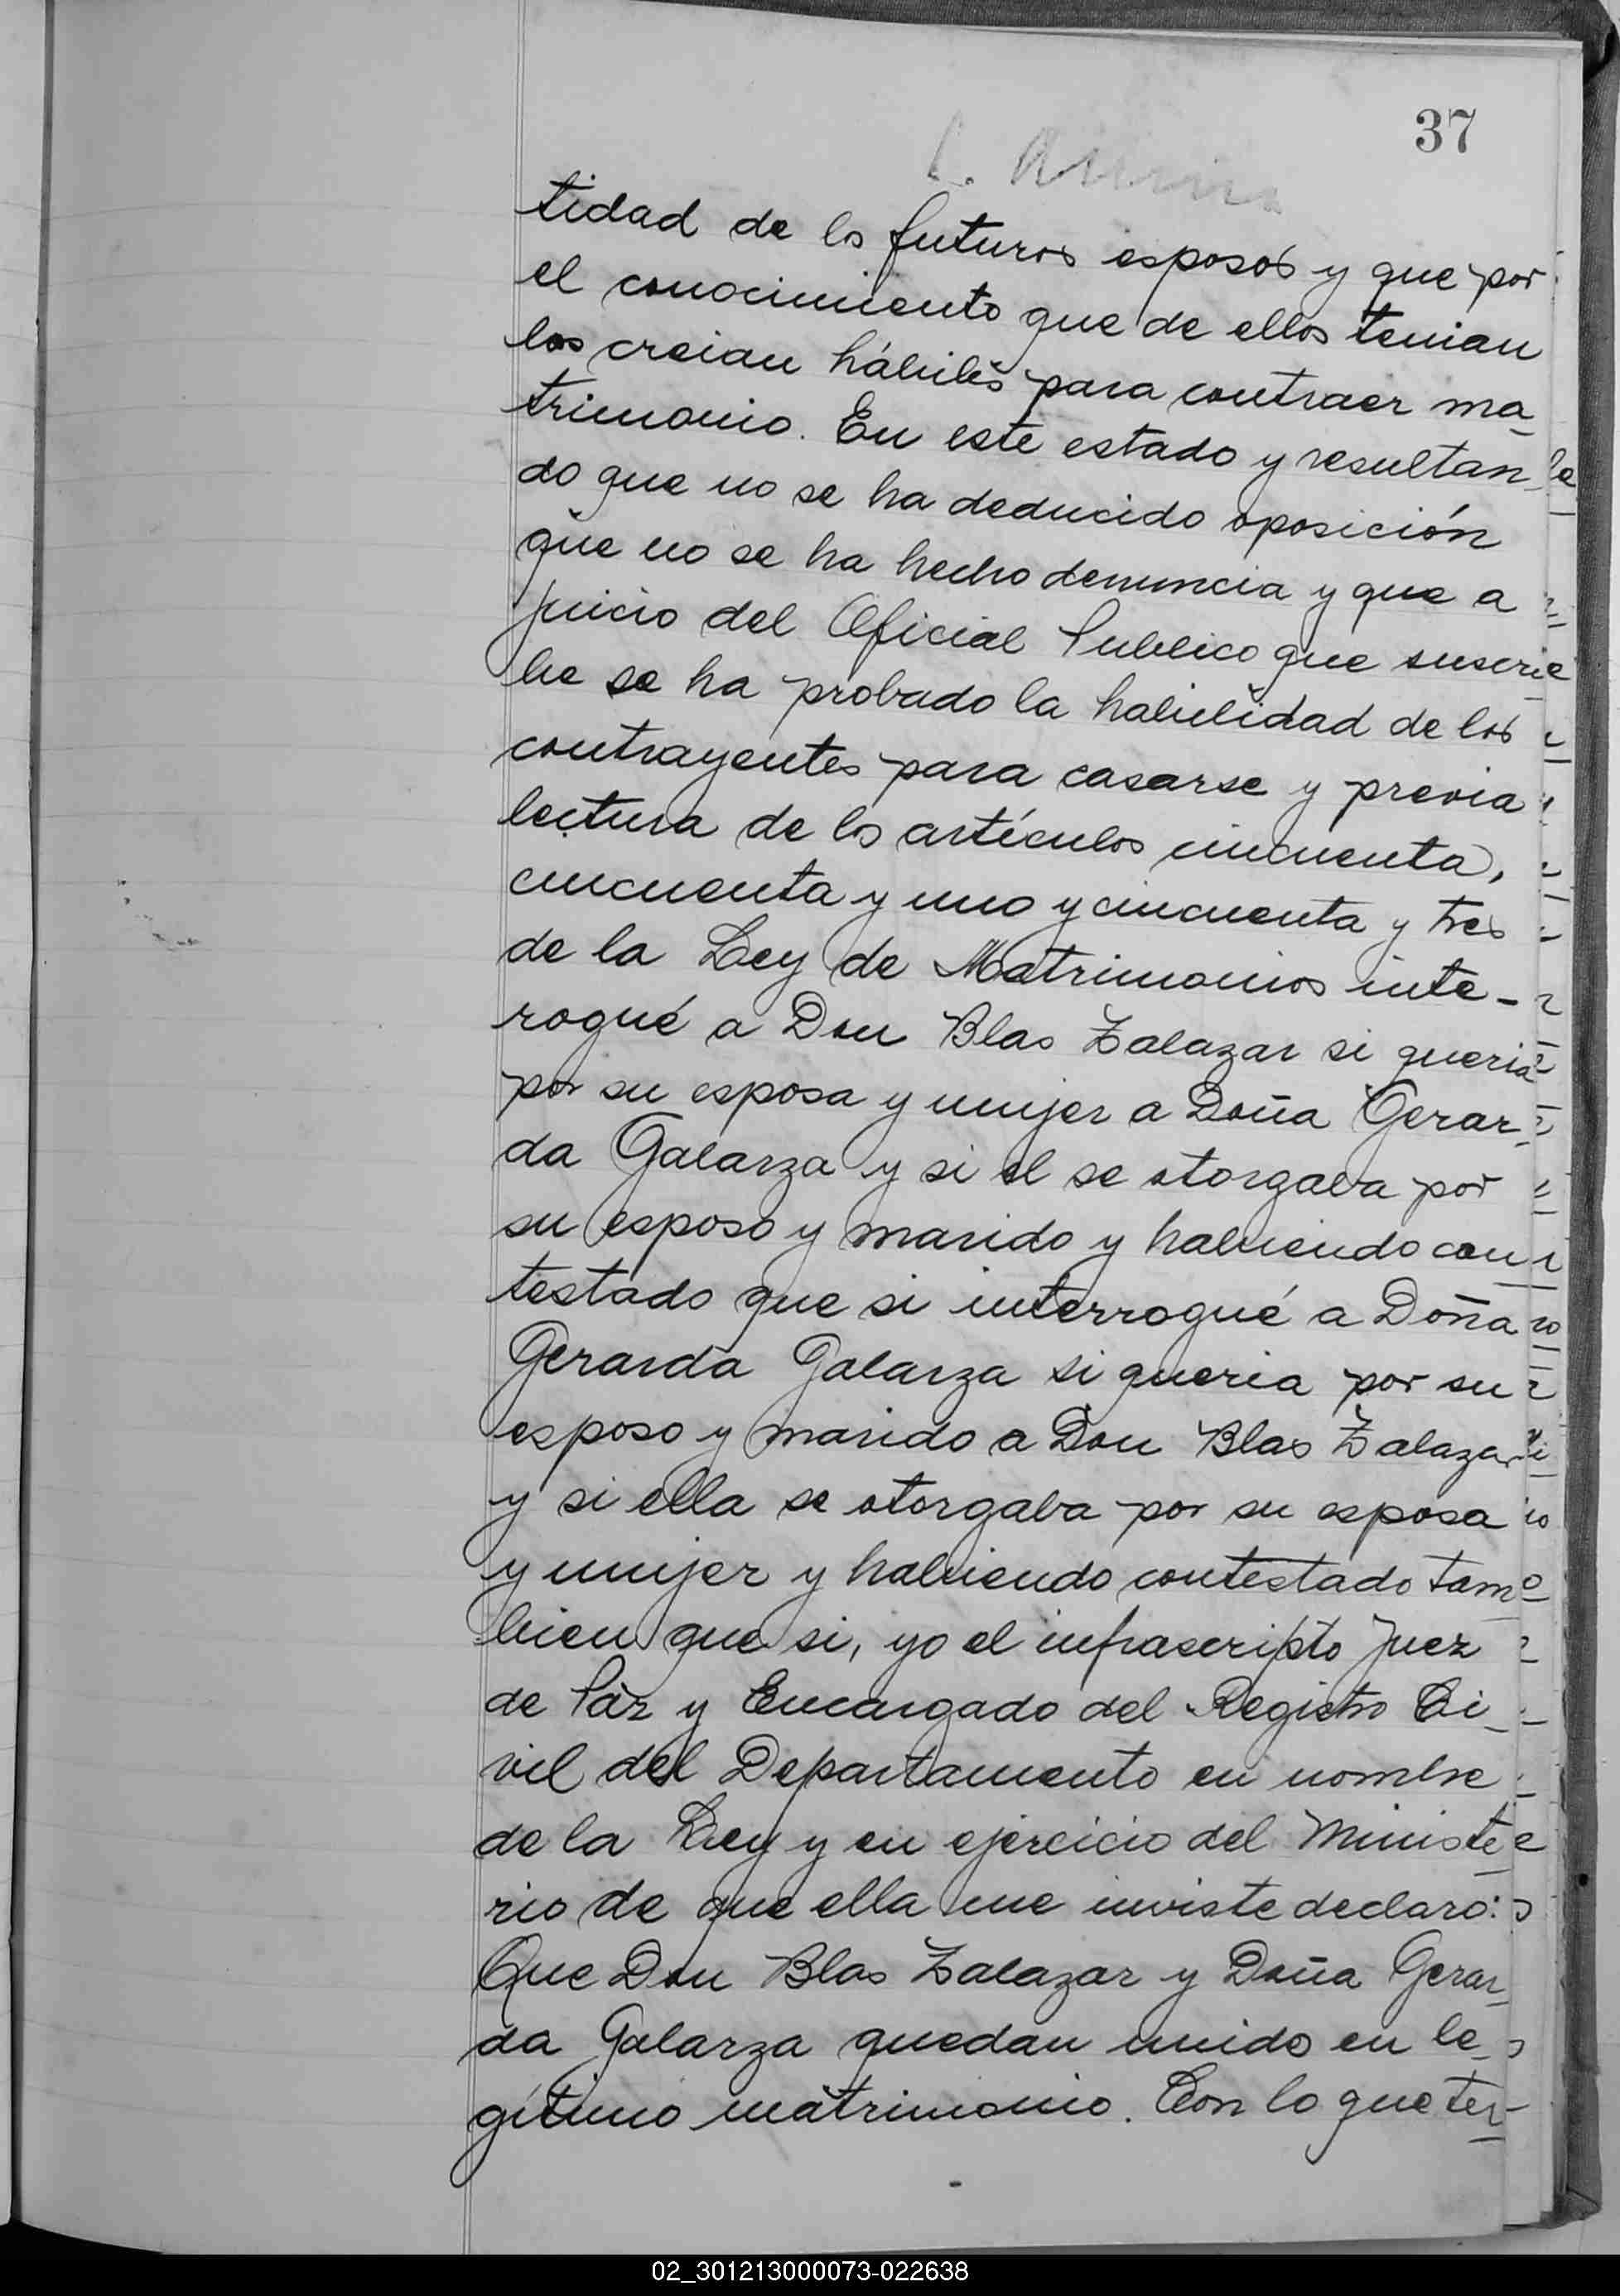 37
tidad de los futuros esposos y que por
el conocimiento que de ellos tenian
los creian hábiles para contraer ma_
trimonio. En este estado y resultan_
do que no se ha deducido oposición
que no se ha hecho denuncia y que a
juicio del Oficial Publico que suscri_
be se ha probado la habilidad de los
contrayentes para casarse y previa
lectura de los artículos cincuenta,
cincuenta y uno y cincuenta y tres
de la Ley de Matrimonios inte-
rogué a Don Blas Zalazar si queria
por su esposa y mujer a Doña Gerar_
da Galarza y si el se otorgaba por
su esposo y marido y habiendo con
testado que si interrogué a Doña
Gerarda Galarza si queria por su
esposo y marido a Don Blas Zalazar
y si ella se otorgaba por su esposa
y mujer y habiendo contestado tam_
bien que si, yo el infrascripto Juez
de Páz y Encargado del Registro Ci_
vil del Departamento en nombre
de la Ley y en ejercicio del Ministe_
rio de que ella me inviste declaro:
Que Don Blas Zalazar y Doña Gerar_
da Galarza quedan unido en le_
gítimo matrimonio. Con lo que ter_
02_301213000073-022638